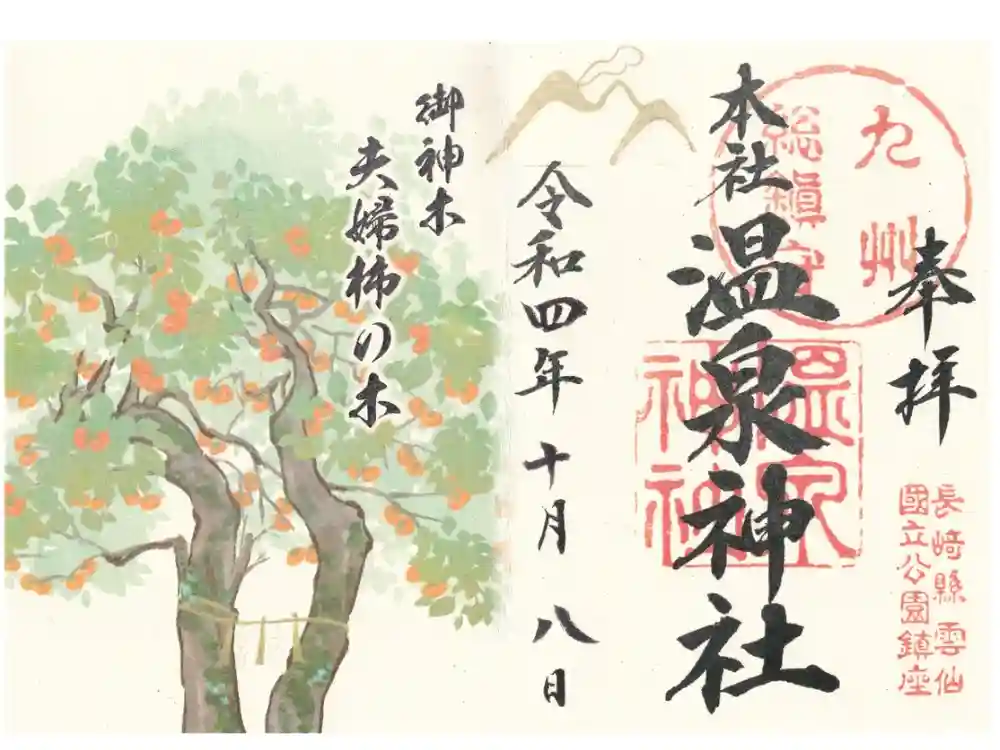 奉拝
九州
総鎮守
本社
温泉神社
温泉神社
長崎縣雲仙
國立公園鎮座
令和四年十月八日
御神木
夫婦柿の木